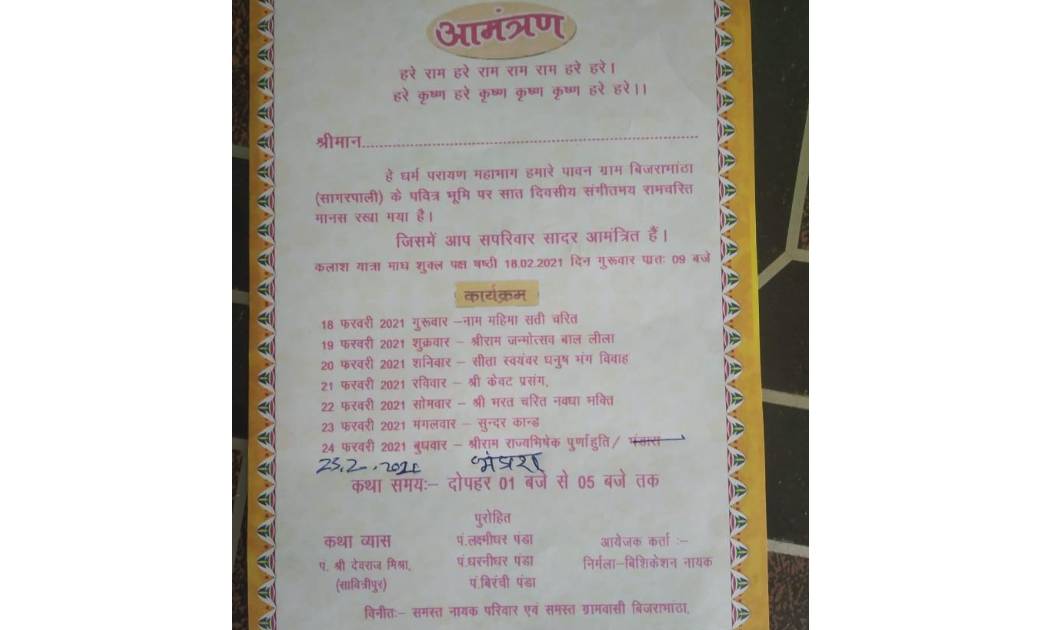 आमंत्रण
हरे राम हरे राम राम राम हरे हरे।
हरे कृष्ण हरे कृष्ण कृष्ण कृष्ण हरे हरे।।
श्रीमान........................................................................
हे धर्म परायण महाभाग हमारे पावन ग्राम बिजराभांठा
(सागरपाली) के पवित्र भूमि पर सात दिवसीय संगीतमय रामचरित
मानस रखा गया है।
जिसमें आप सपरिवार सादर आमंत्रित हैं।
कलाश यात्रा माघ शुक्ल पक्ष षष्ठी 18.02.2021 दिन गुरूवार पातः 09 बजे
कार्यक्रम
18 फरवरी 2021 गुरूवार –नाम महिमा सती चरित
19 फरवरी 2021 शुक्रवार – श्रीराम जन्मोत्सव बाल लीला
20 फरवरी 2021 शनिवार – सीता स्वयंवर धनुष भंग विवाह
21 फरवरी 2021 रविवार – श्री केवट प्रसंग,
22 फरवरी 2021 सोमवार – श्री भरत चरित नवधा भक्ति
23 फरवरी 2021 मंगलवार – सुन्दर काण्ड
24 फरवरी 2021 बुधवार – श्रीराम राज्यभिषेक पुर्णाहुति/
25.2.2021
कथा समयः– दोपहर 01 बजे से 05 बजे तक
पुरोहित
कथा व्यास पं.लक्ष्मीधर पंडा आयेजक कर्ता :–
पं. श्री देवराज मिश्रा, पं.धरनीधर पंडा निर्मला–बिशिकेशन नायक
(सावित्रीपुर) पं.बिरंची पंडा
विनीतः– समस्त नायक परिवार एवं समस्त ग्रामवासी बिजराभांठा,